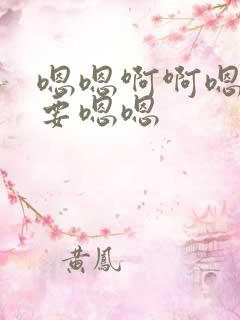 嗯嗯啊啊嗯
要嗯嗯
黄鳳